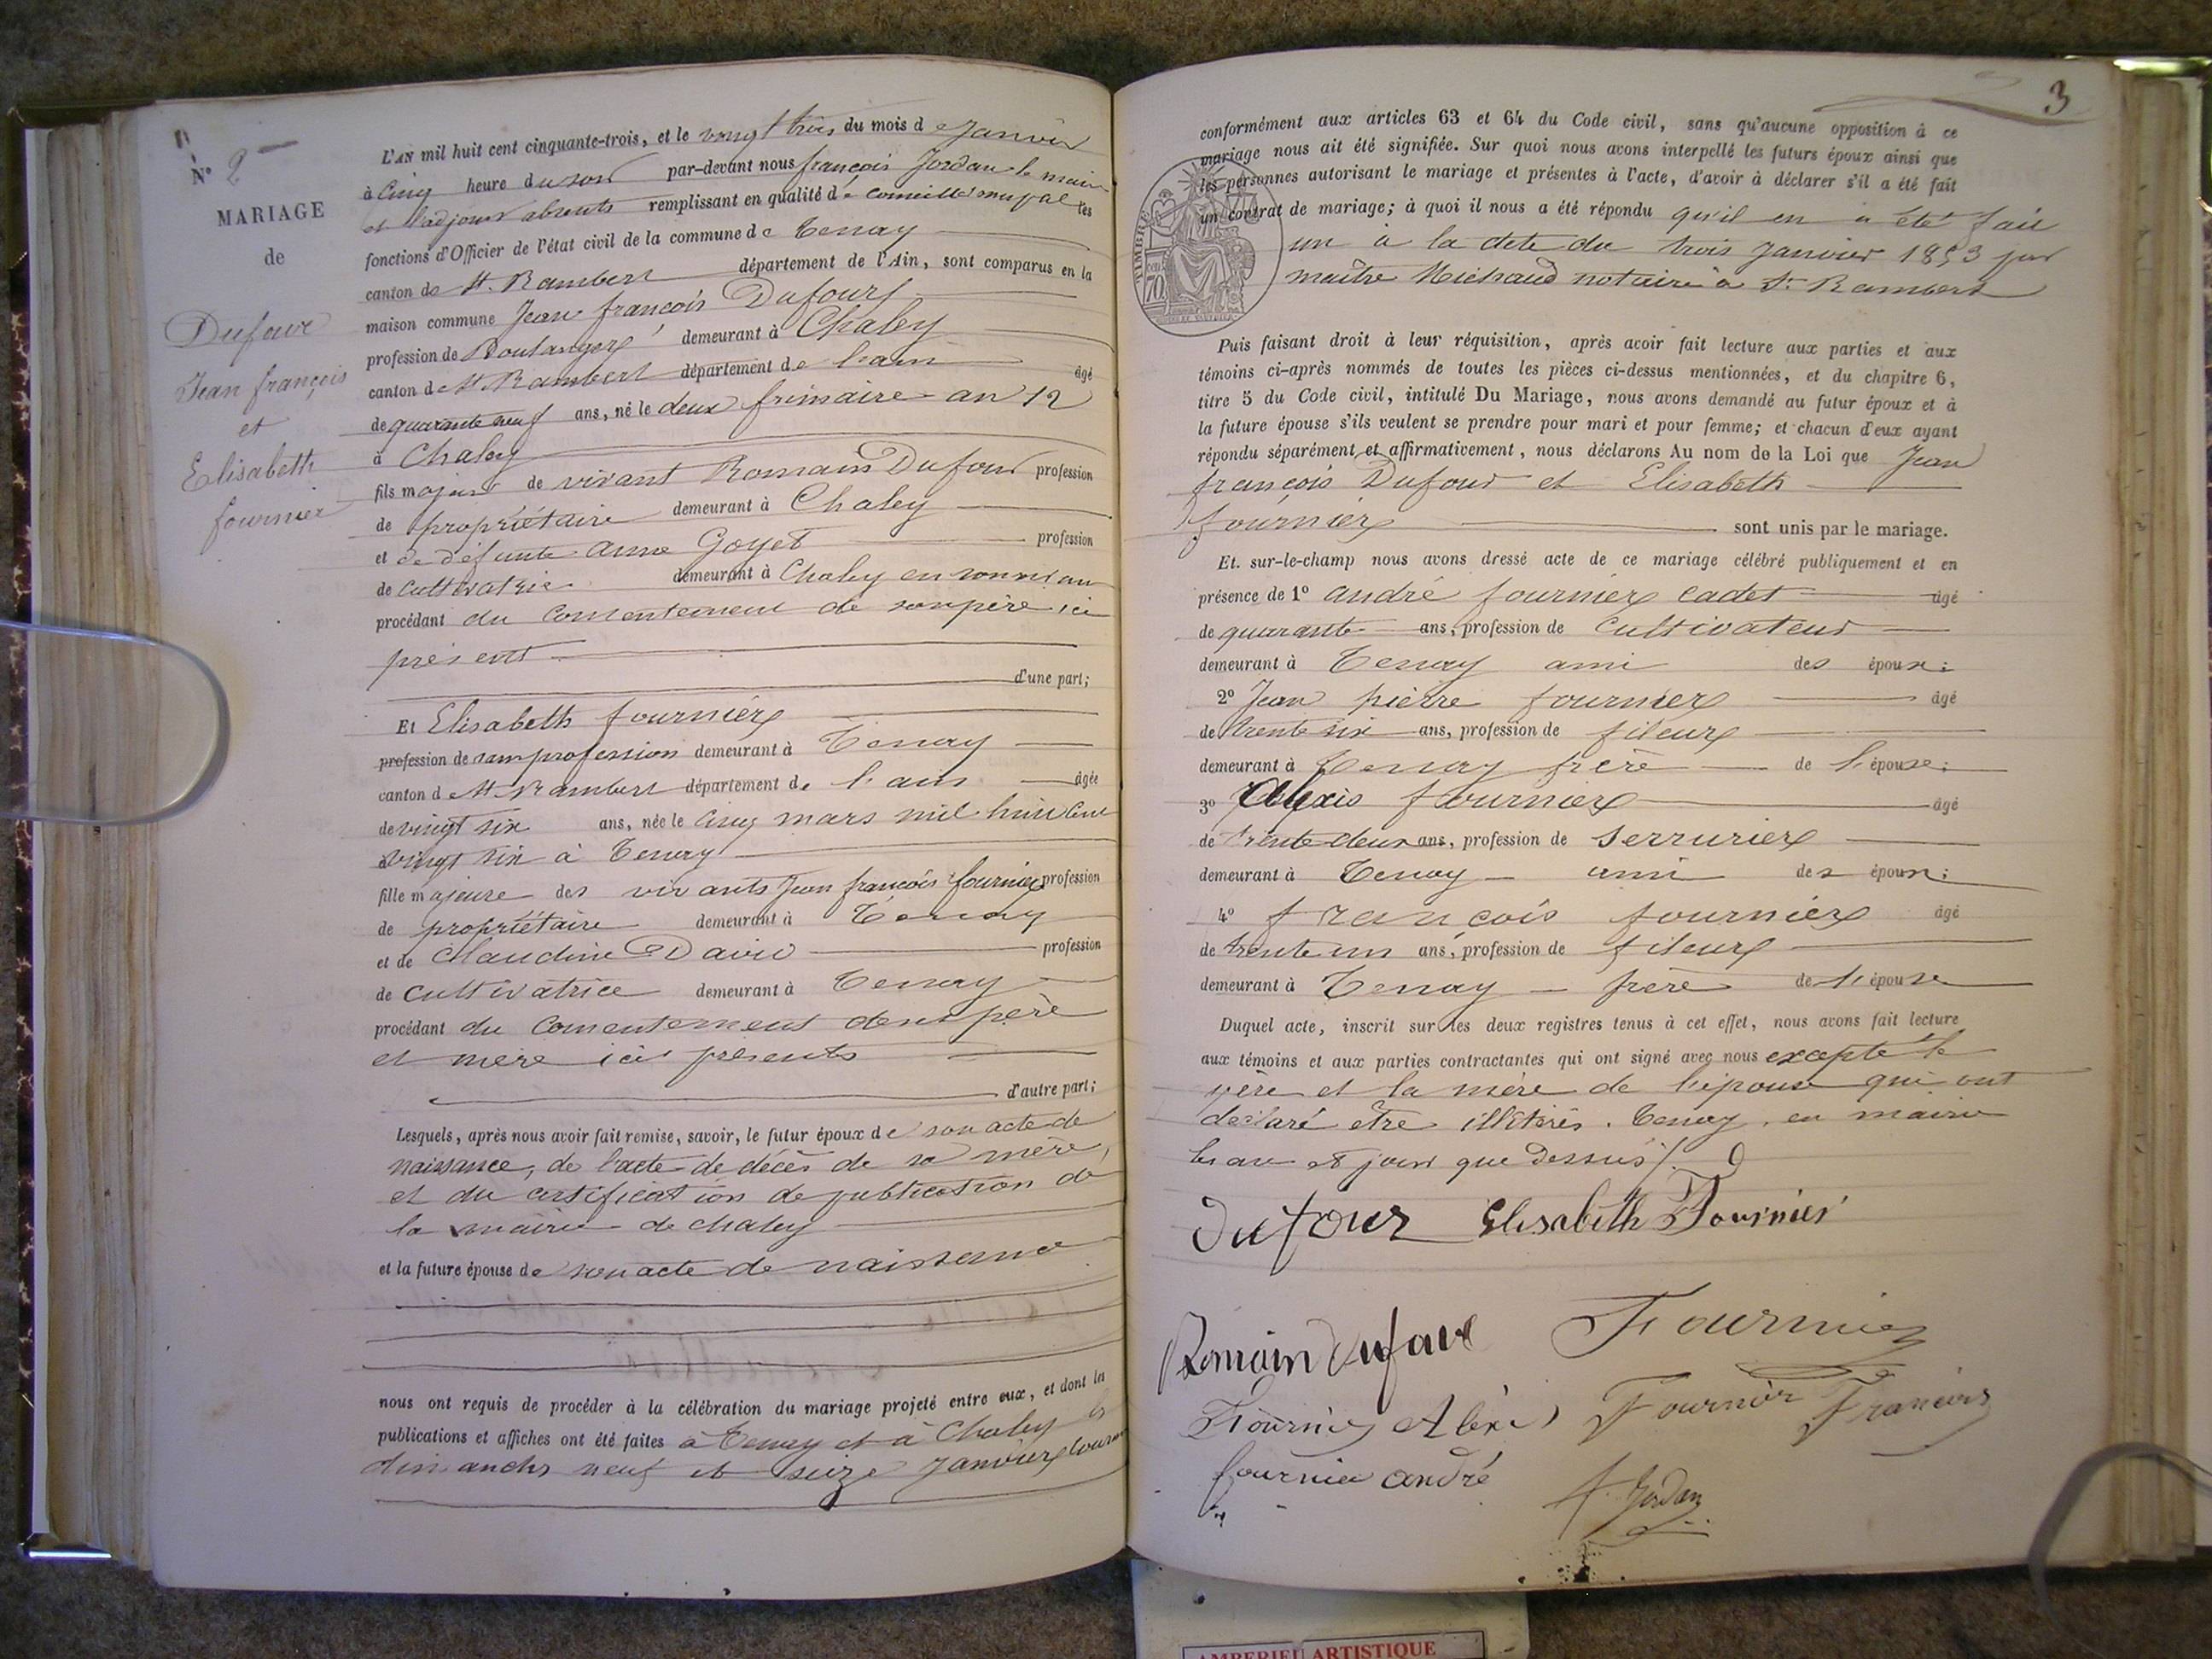 N° 2
MARIAGE
de
Dufour
Jean françois
et
Elisabeth
fournier
L'AN mil huit cent cinquante-trois, et le vingt trois du mois de Janvier
à cinq heure du soir par-devant nous françois Jordan le maire
et l'adjoint absents remplissant en qualité de conseiller mupal les
fonctions d'Officier de l'état civil de la commune de Tenay
canton de St. Rambert département de l'Ain, sont comparus en la
maison commune Jean françois Dufour
profession de Boulanger demeurant à Chaley
canton de St Rambert département de l'ain âgé
de quarante neuf ans, né le deux frimaire an 12
à Chaley
fils majeur de vivant Romain Dufour profession
de propriétaire demeurant à Chaley
et de défunte anne Goyet profession
de cultivatrice demeurant à Chaley en son vivant
procédant du consentement de son père ici
présent
d'une part;
Et Elisabeth fournier
profession de sans profession demeurant à Tenay
canton de St Rambert département de l'ain âgée
de vingt six ans, née le cinq mars mil huit cent
vingt six à Tenay
fille majeure des vivants Jean françois fournier profession
de propriétaire demeurant à Tenay
et de Claudine David profession
de cultivatrice demeurant à Tenay
procédant du consentement de ses père
et mère ici présents
d'autre part;
Lesquels, après nous avoir fait remise, savoir, le futur époux de son acte de
naissance, de l'acte de décès de sa mère,
et du certification de publication de
la mairie de chaley
et la future épouse de son acte de naissance
nous ont requis de procéder à la célébration du mariage projeté entre eux, et dont les
publications et affiches ont été faites à Tenay et à Chaley les
dimanches neuf et seize Janvier courant
3
conformément aux articles 63 et 64 du Code civil, sans qu'aucune opposition à ce
mariage nous ait été signifiée. Sur quoi nous avons interpellé les futurs époux ainsi que
les personnes autorisant le mariage et présentes à l'acte, d'avoir à déclarer s'il a été fait
un contrat de mariage; à quoi il nous a été répondu qu'il en a été fait
un à la date du trois janvier 1853 par
maître Michaud notaire à St. Rambert
TIMBRE
70
Puis faisant droit à leur réquisition, après avoir fait lecture aux parties et aux
témoins ci-après nommés de toutes les pièces ci-dessus mentionnées, et du chapitre 6,
titre 5 du Code civil, intitulé Du Mariage, nous avons demandé au futur époux et à
la future épouse s'ils veulent se prendre pour mari et pour femme; et chacun d'eux ayant
répondu séparément et affirmativement, nous déclarons Au nom de la Loi que Jean
françois Dufour et Elisabeth
fournier sont unis par le mariage.
Et. sur-le-champ nous avons dressé acte de ce mariage célébré publiquement et en
présence de 1° andré fournier cadet âgé
de quarante ans, profession de cultivateur
demeurant à Tenay ami des époux;
2° Jean pierre fournier âgé
de trente six ans, profession de fileur
demeurant à Tenay frère de l'épouse;
3° Alexis fournier âgé
de trente deux ans, profession de serrurier
demeurant à Tenay ami des époux;
4° françois fournier âgé
de trente un ans, profession de fileur
demeurant à Tenay frère de l'épouse
Duquel acte, inscrit sur les deux registres tenus à cet effet, nous avons fait lecture
aux témoins et aux parties contractantes qui ont signé avec nous excepté le
père et la mère de l'épouse qui ont
déclaré être illétérés. Tenay, en mairie
les an et jour que dessus/.
Dufour Elisabeth Fournier
Romain Dufour Fournier
Fournier Alexis Fournier François
fournier andré f. Jordan
AMBERIEU ARTISTIQUE